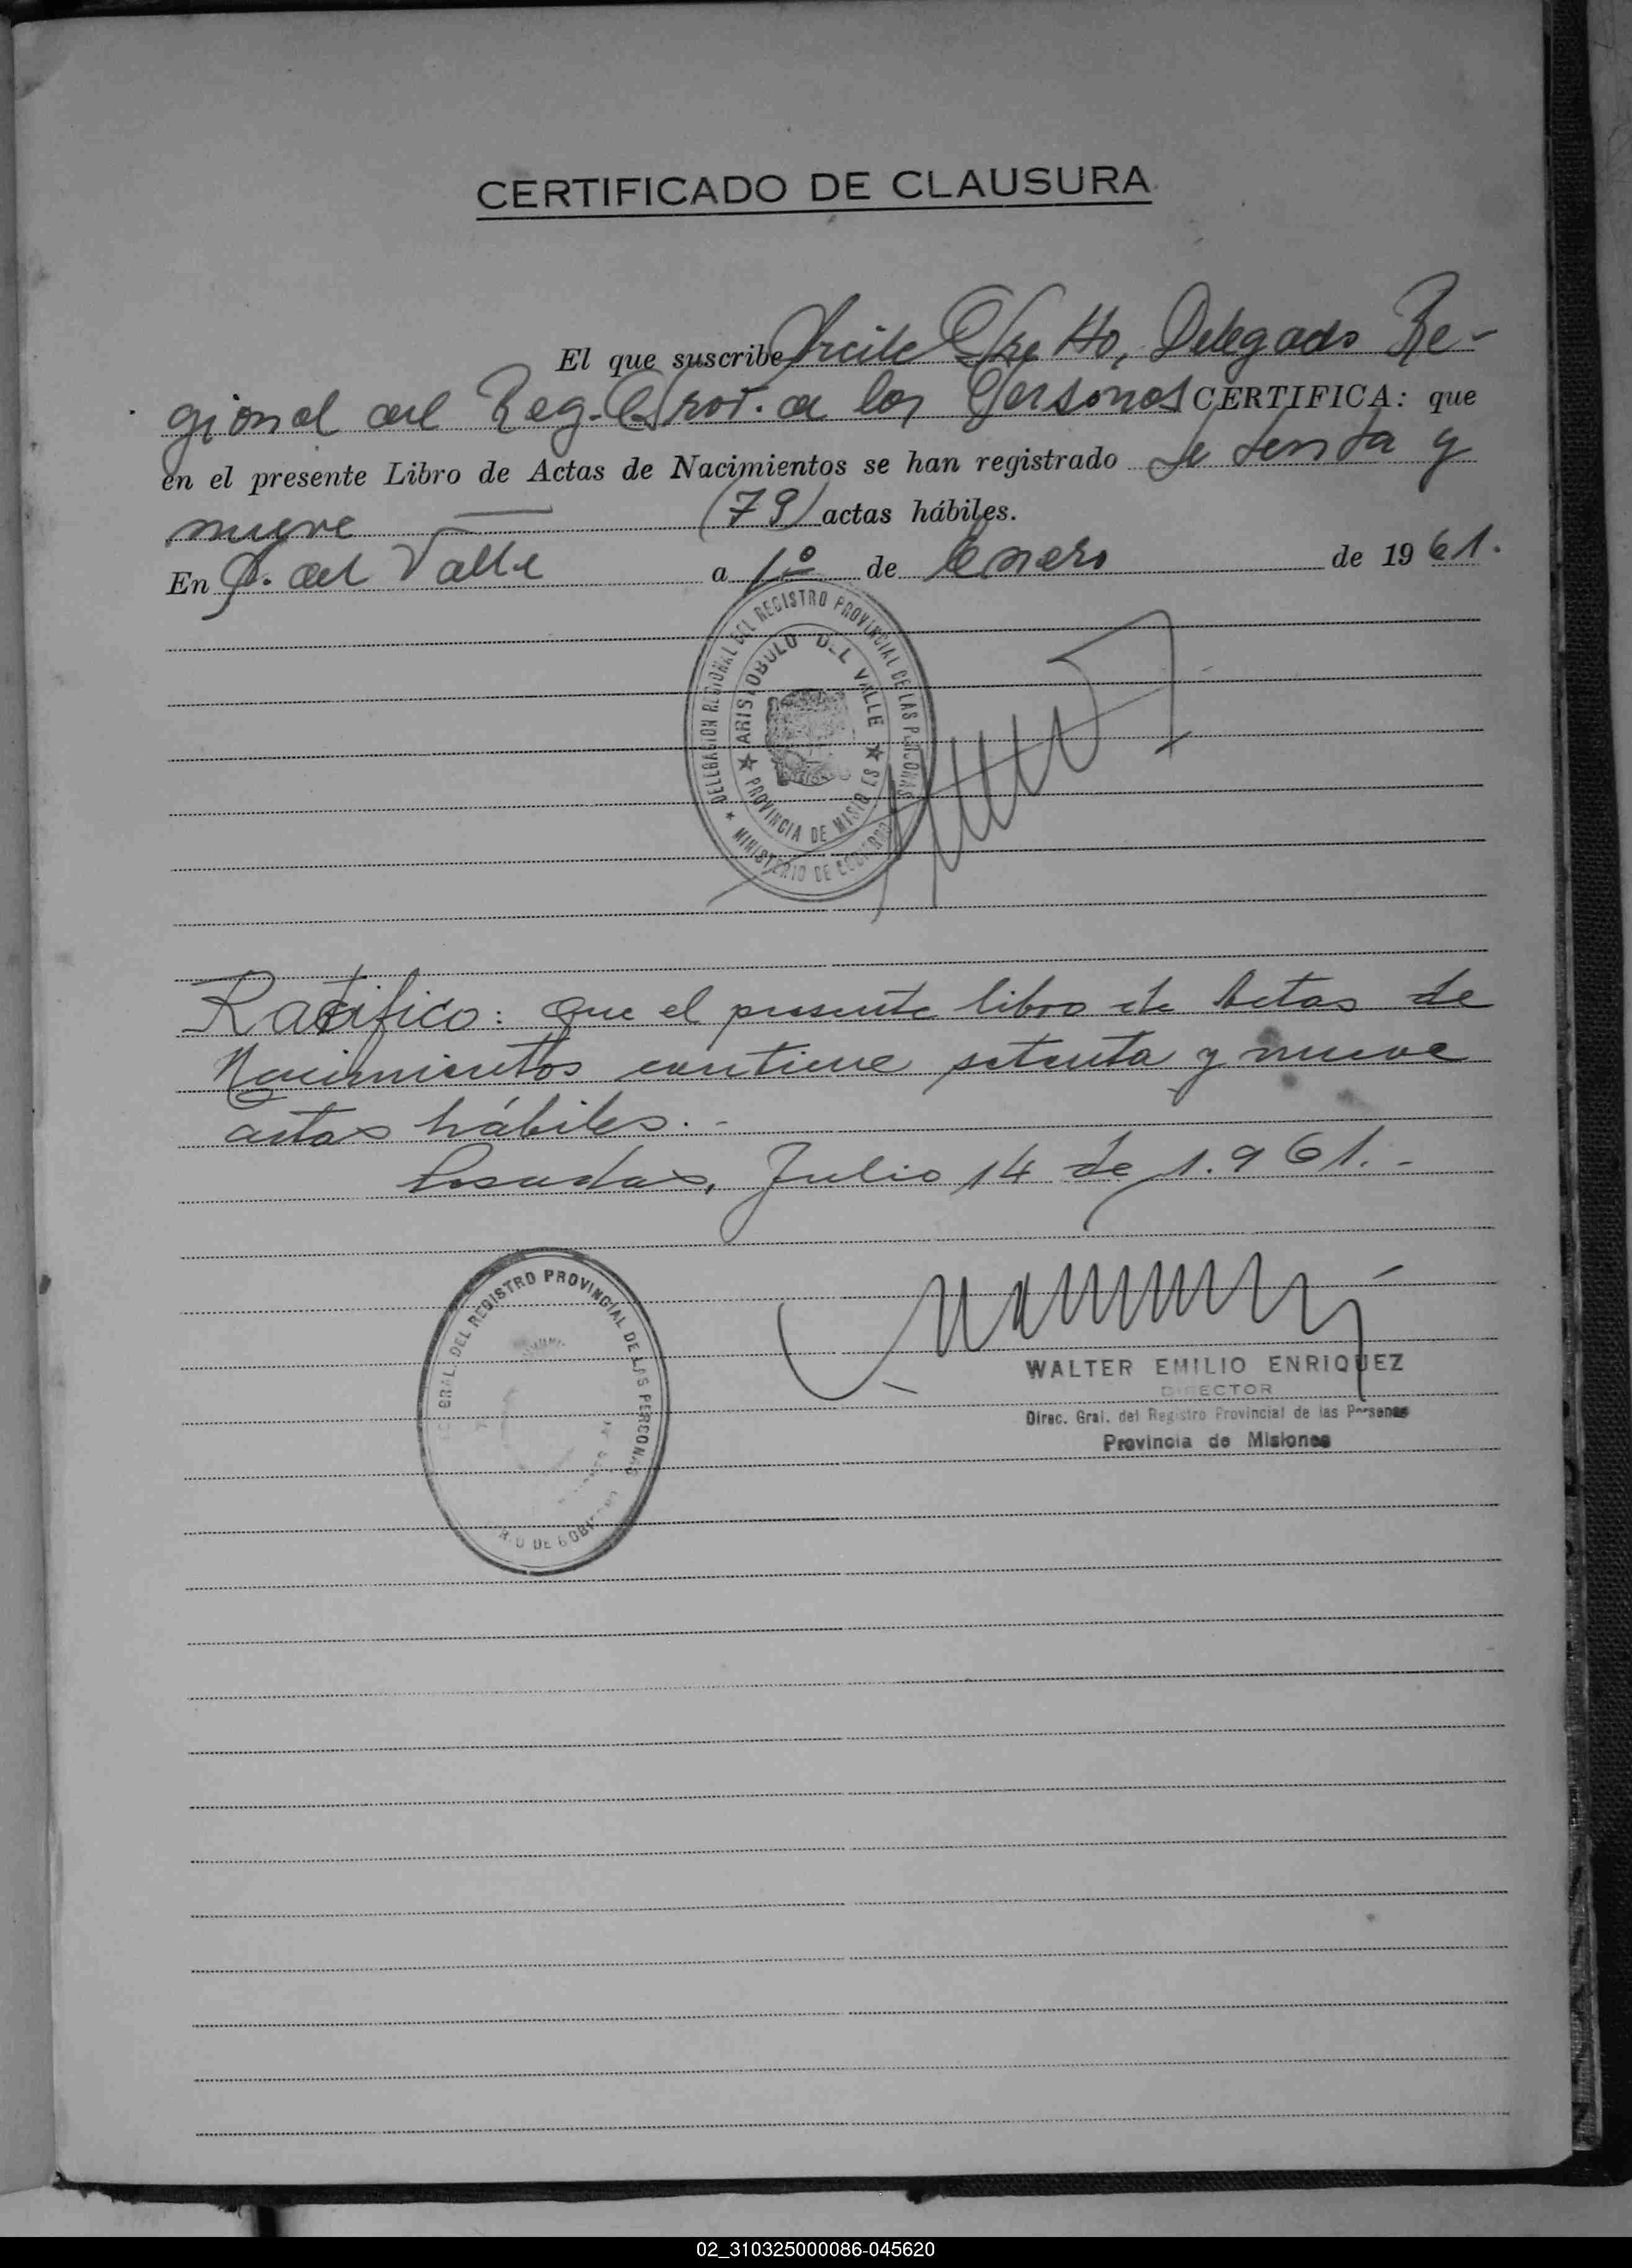 CERTIFICADO DE CLAUSURA
El que suscribe Delegado Re-
gional del Reg. Prov. de las Personas CERTIFICA: que
en el presente Libro de Actas de Nacimientos se han registrado Setenta y
nueve (79) actas hábiles.
En A. del Valle a 1º de Enero de 1961.
DELEGACION REGIONAL DEL REGISTRO PROVINCIAL DE LAS PERSONAS
ARISTOBULO DEL VALLE
PROVINCIA DE MISIONES
MINISTERIO DE GOBIERNO
Ratifico: Que el presente libro de Actas de
Nacimientos contiene setenta y nueve
actas hábiles.-
Posadas, Julio 14 de 1.961.-
GRAL. DEL REGISTRO PROVINCIAL DE LAS PERSONAS
WALTER EMILIO ENRIQUEZ
DIRECTOR
Direc. Gral. del Registro Provincial de las Personas
Provincia de Misiones
02_310325000086-045620